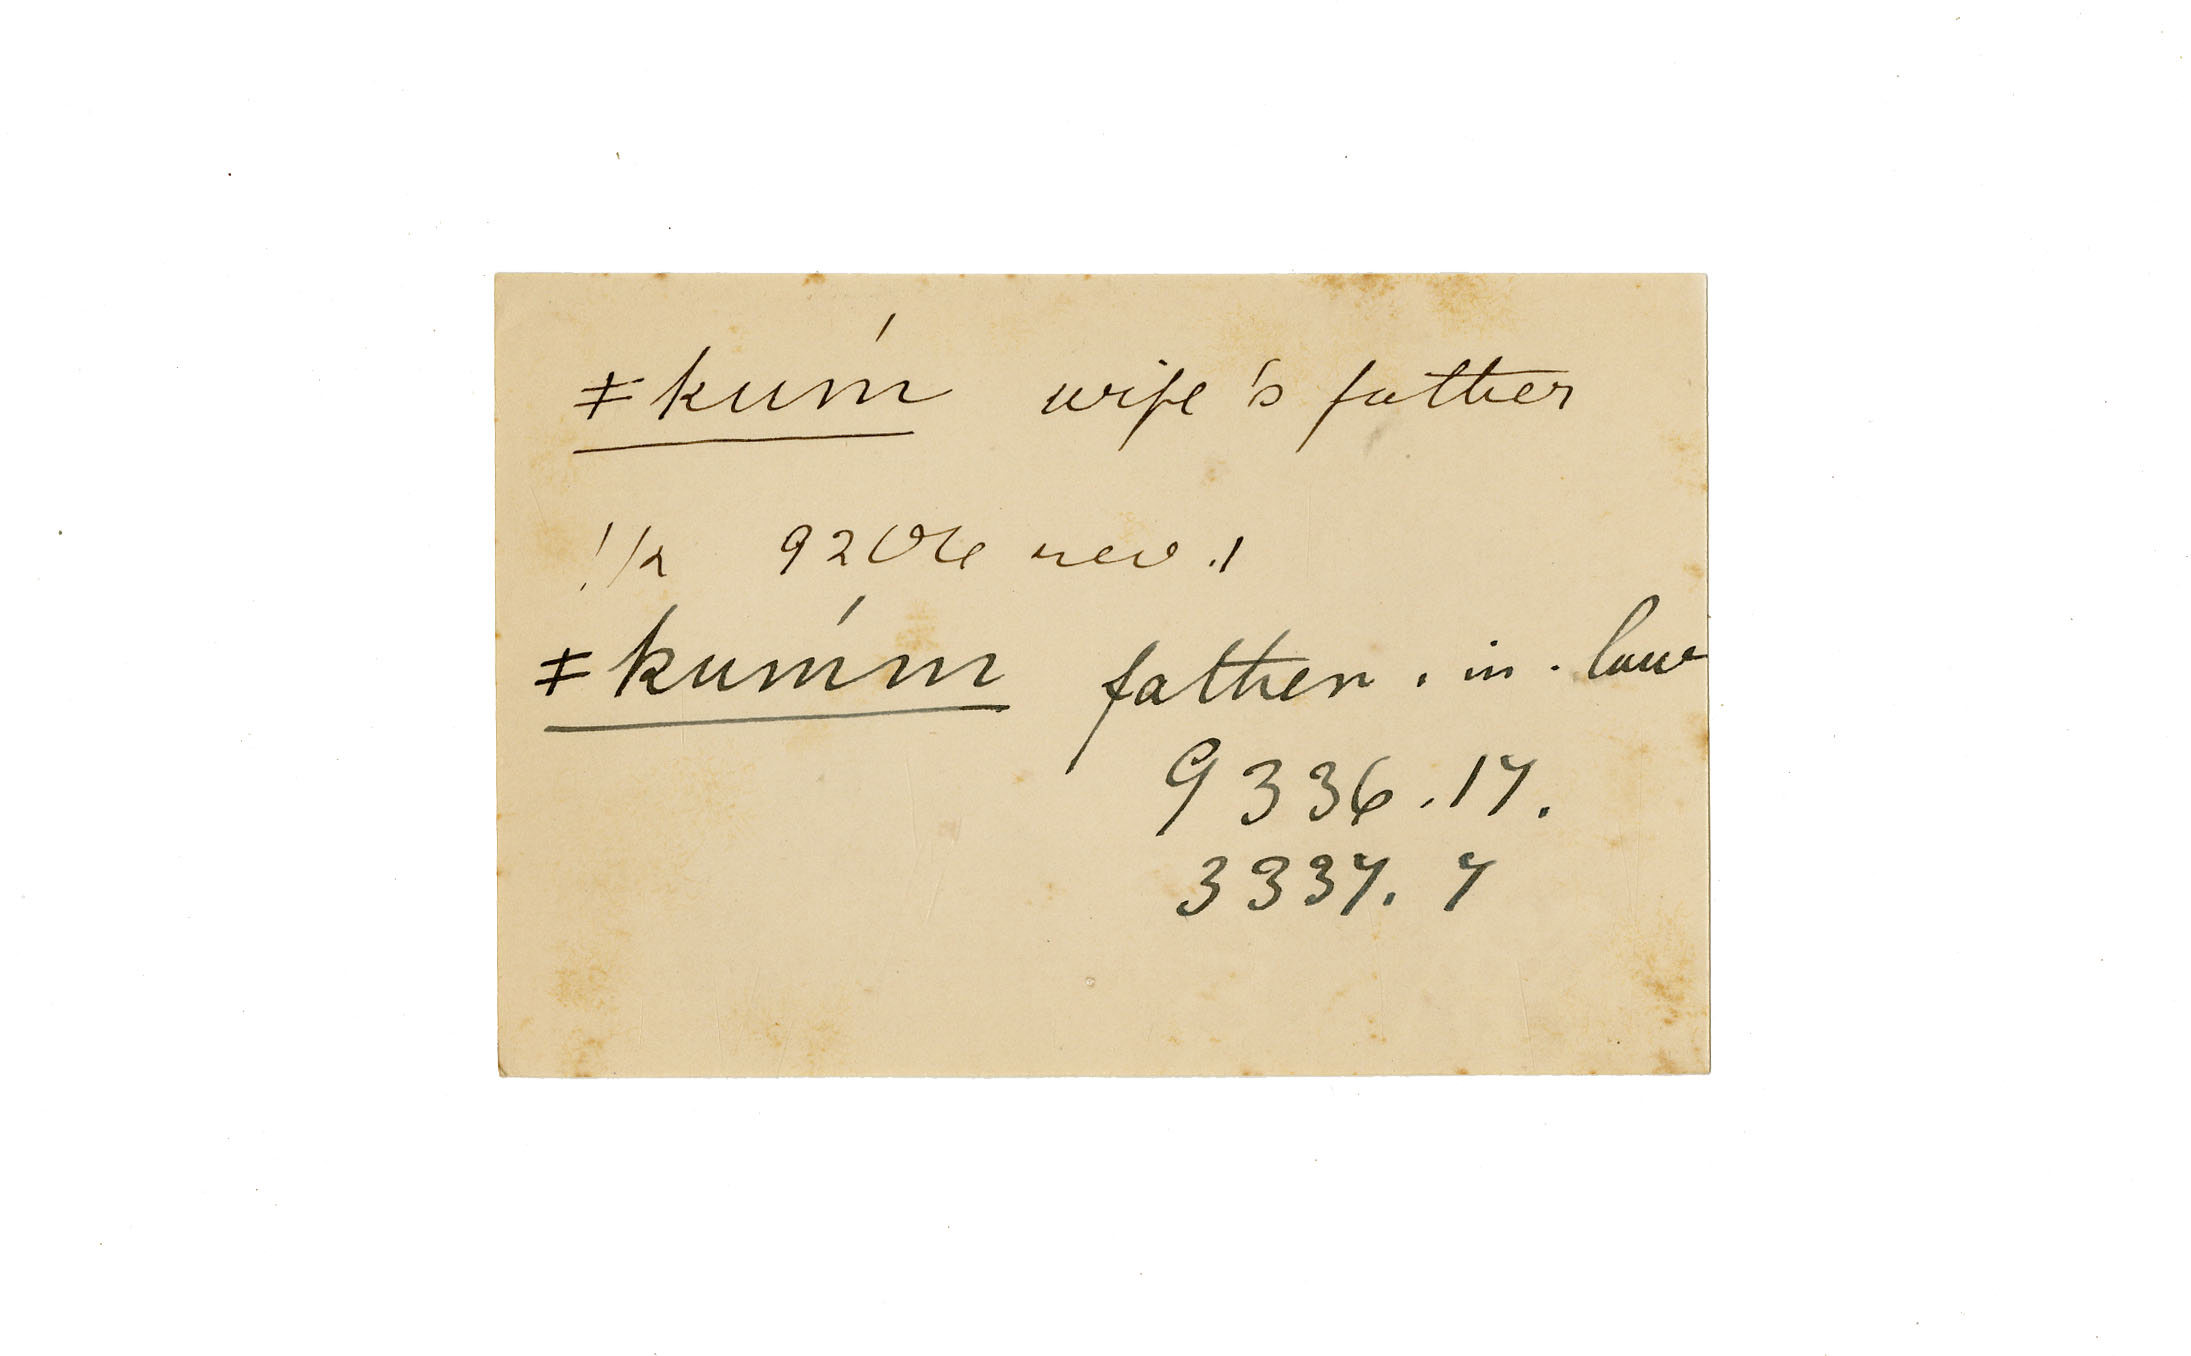 ǂkuḿ wife's father
!k 9206 rev. 1
ǂkuḿm father-in-law
9336.17.
3337.7